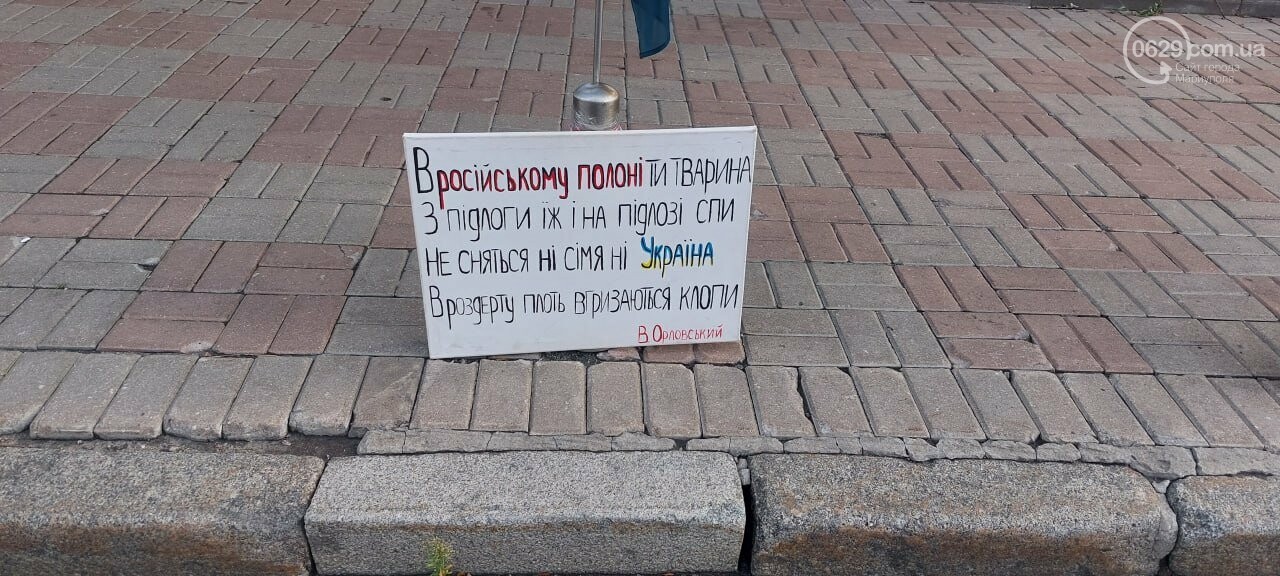 0629.com.ua
Сайт города
Мариуполя
В російському полоні ти тварина
З підлоги їж і на підлозі спи
Не сняться ні сімя ні Україна
В роздерту плоть вгризаються клопи
В Орловський